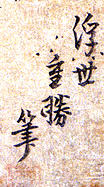 浮世
重勝
筆